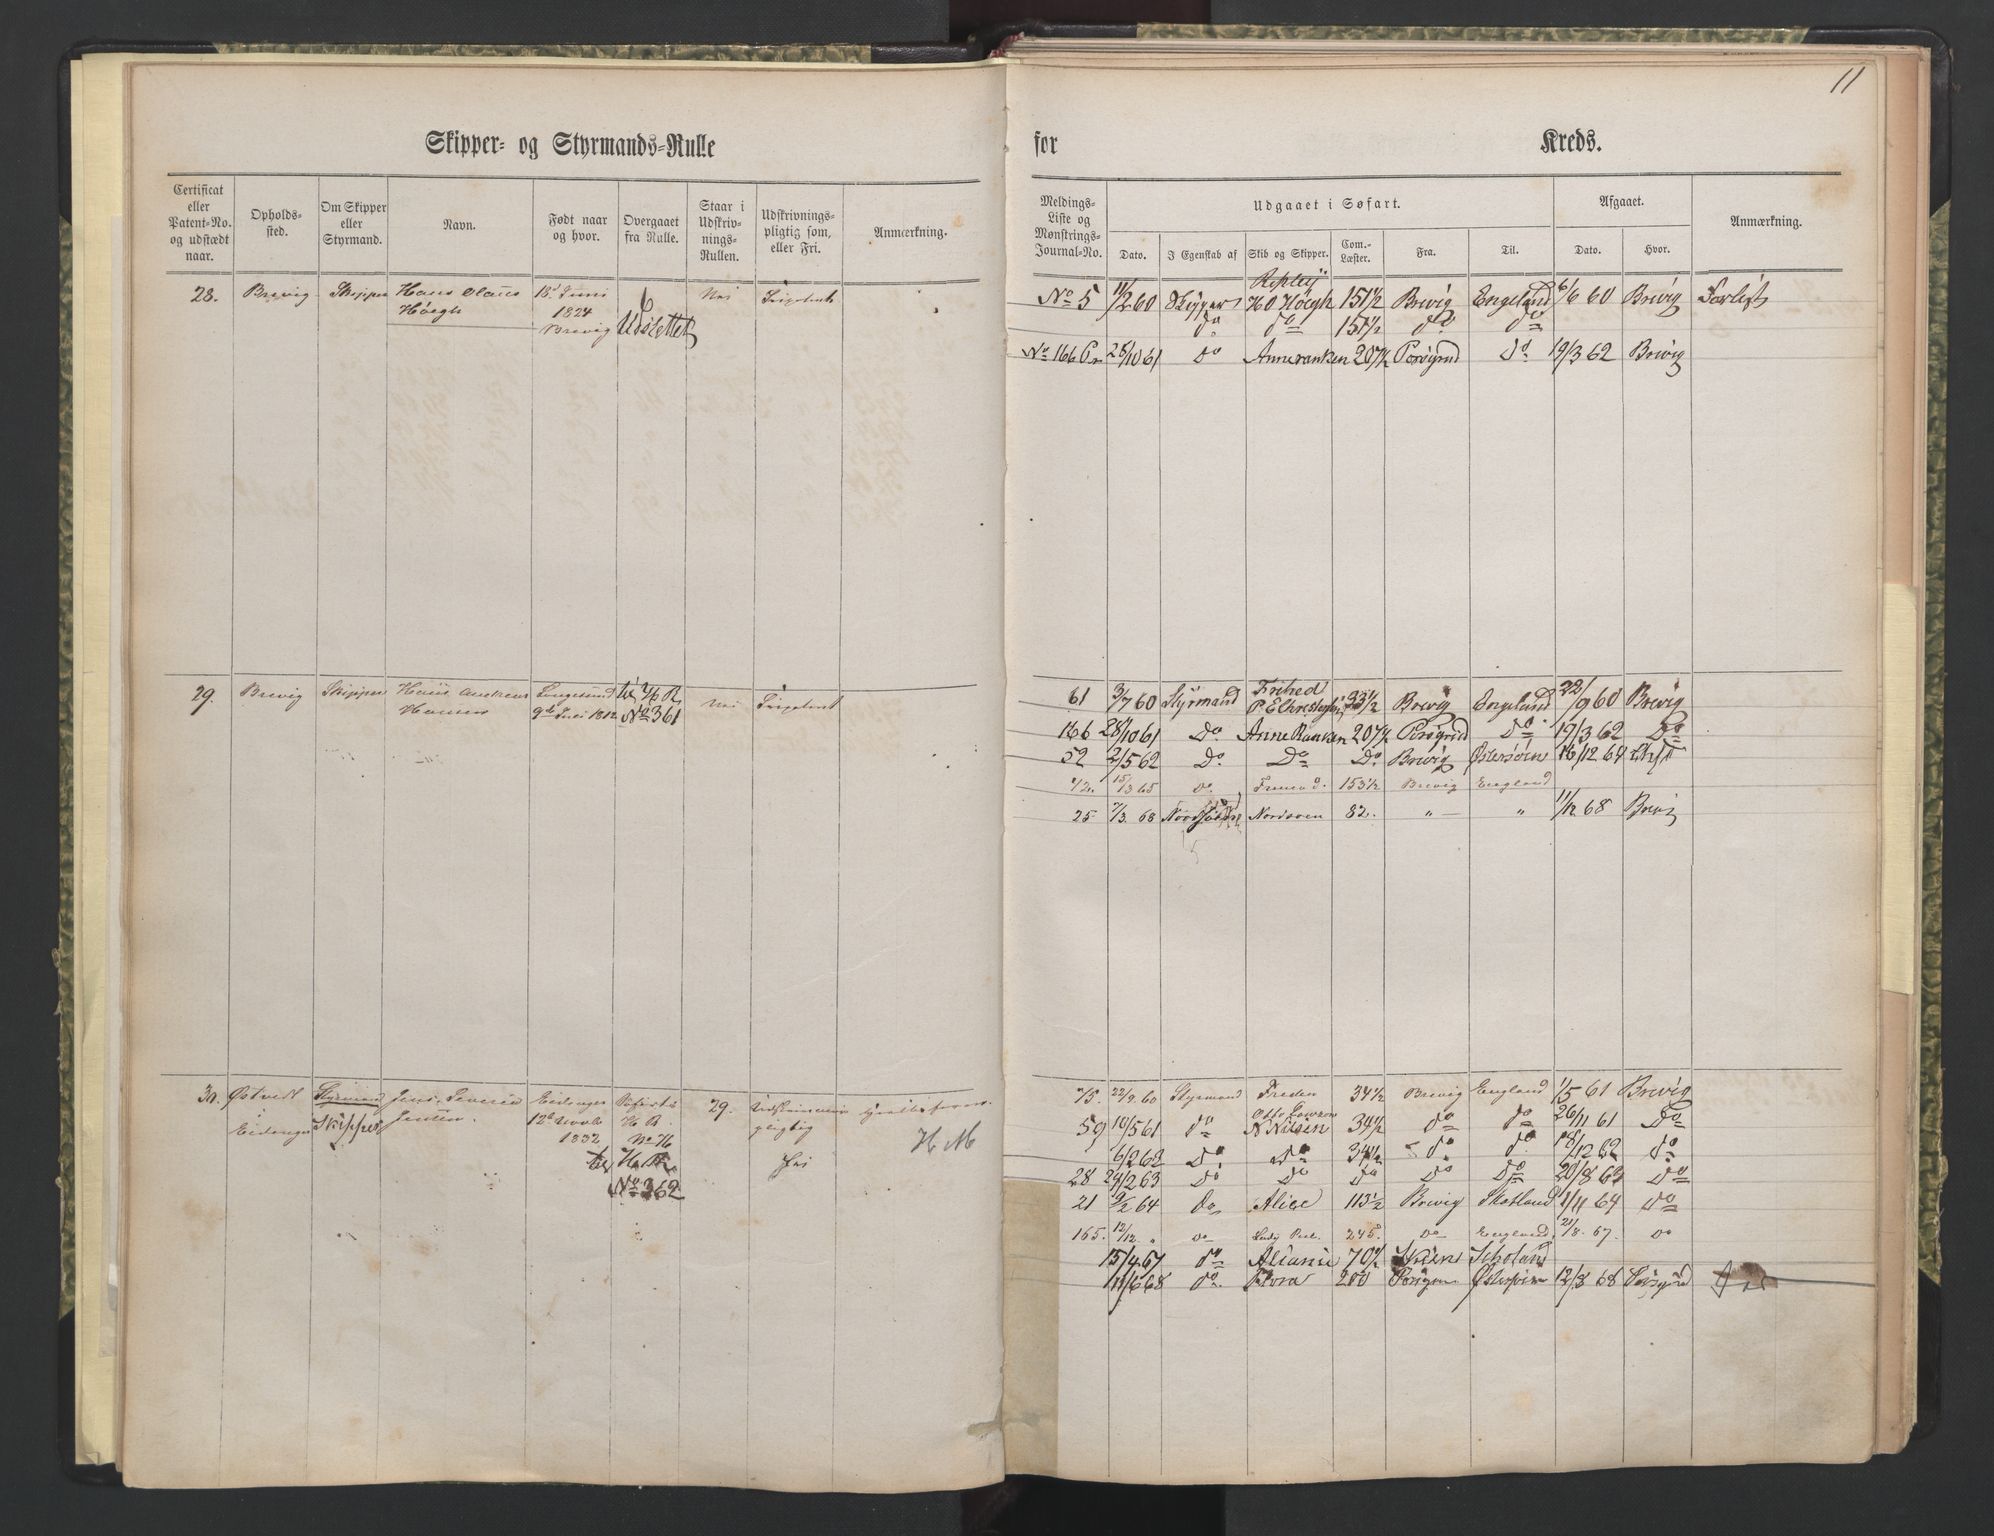 11
Skipper- og Styrmands-Rulle
for Kreds.
Certificat eller Patent-No. og udstædt naar.
Opholds-sted.
Om Skipper eller Styrmand.
Navn.
Født naar og hvor.
Overgaaet fra Rulle.
Staar i Udskriv-nings-Rullen.
Udskrivnings-pligtig som, eller Fri.
Anmærkning.
Meldings-Liste og Mønstrings-Journal-No.
Udgaaet i Søfart.
Dato.
I Egenskab af
Skib og Skipper.
Com.-Læster.
Fra.
Til.
Afgaaet.
Dato.
Hvor.
Anmærkning.
28. Brevig Skipper Hans Olaus
Høegh
18d Juni
1824
Brevig
Udslettet
Nei
No 5 11/2 60 HO Høegh 151 1/2 Brevig Engeland 6/6 60 Brevig Forlist
do do 151 1/2 do do
No 166 25/10 61 Do Anneranken 207 1/2 Porsgrund Do 19/3 62 Brevig
29. Brevig Skipper Hans Andreas
Hansen
Langesund
No 361
Nei
61 3/7 60 Styrmand Frihed
33 1/2 Brevig Engeland 22/9 60 Brevig
166 28/10 61 Do Anne Ranken 207 1/2 Porsgrund Do 19/3 62 Do
52 2/5 62 Do Do Do Brevig Østersøen 16/12 64
15/3 65 do 153 1/2 Brevig England
25 7/3 68 Nordsøen 82. " " 11/12 68 Brevig
30. Østvedt
i
Eidanger
Styrmand
Skipper
Jens Severin
Jensen.
Eidanger
1832
No 362
29.
pligtig
Fri
H M
75. 22/9 60 Styrmand Freden 34 1/2 Brevig England 1/5 61 Brevig
59 10/5 61 do N Nilsen 34 1/2 do do 26/11 61 Do
6/2 62 Do Do 34 1/2 do do 18/12 62 do
28 24/2 63 Do Do Do Do Do 20/8 63 Do
21 9/2 64 Do Alice 113 1/2 Brevig Skotland 1/11 64 do
165. 12/12 " do 245. do England 21/8. 67. do
15/4 67 do Aliance 70 1/2 Skien Skotland
11/6 68 do Flora 200 12/8 68